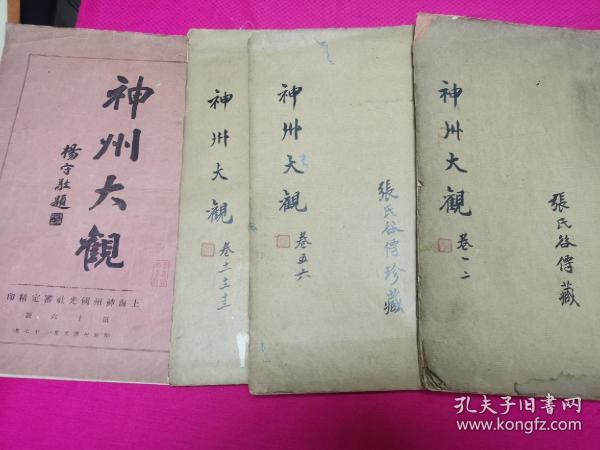 神州大觀
楊守敬題
上海神州國光社審定精印
第十六號
神州大觀
卷十一十二十三
神州大觀
卷五六
張氏谷傳珍藏
神州大觀
卷一二
張氏谷傳藏
孔夫子旧书网
www.kongfz.com